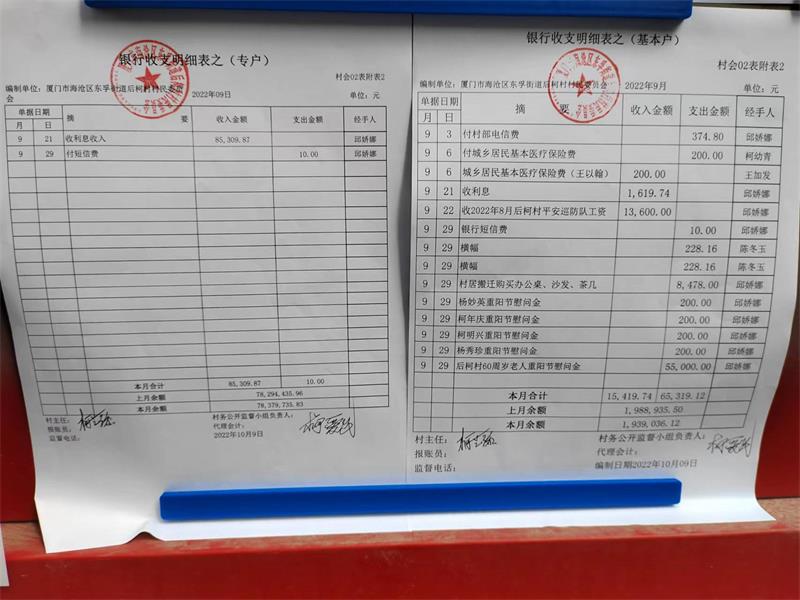 银行收支明细表之（专户）
村会02表附表2
编制单位：厦门市海沧区东孚街道后柯村村民委员会
2022年09月
单位：元
单据日期 摘 要 收入金额 支出金额 经手人
月 日
9 21 收利息收入 85,309.87 邱娇娜
9 29 付短信费 10.00 邱娇娜
本月合计 85,309.87 10.00
上月余额 78,294,435.96
本月余额 78,379,735.83
村主任：
村务公开监督小组负责人：
报账员：
代理会计：
监督电话：
2022年10月9日
银行收支明细表之（基本户）
村会02表附表2
编制单位：厦门市海沧区东孚街道后柯村村民委员会
2022年9月
单位：元
单据日期 摘 要 收入金额 支出金额 经手人
月 日
9 3 付村部电信费 374.80 邱娇娜
9 6 付城乡居民基本医疗保险费 200.00 柯幼青
9 6 城乡居民基本医疗保险费（王以翰） 200.00 王加发
9 21 收利息 1,619.74 邱娇娜
9 22 收2022年8月后柯村平安巡防队工资 13,600.00 邱娇娜
9 29 银行短信费 10.00 邱娇娜
9 29 横幅 228.16 陈冬玉
9 29 横幅 228.16 陈冬玉
9 29 村居搬迁购买办公桌、沙发、茶几 8,478.00 邱娇娜
9 29 杨妙英重阳节慰问金 200.00 邱娇娜
9 29 柯年庆重阳节慰问金 200.00 邱娇娜
9 29 柯明兴重阳节慰问金 200.00 邱娇娜
9 29 杨秀珍重阳节慰问金 200.00 邱娇娜
9 29 后柯村60周岁老人重阳节慰问金 55,000.00 邱娇娜
本月合计 15,419.74 65,319.12
上月余额 1,988,935.50
本月余额 1,939,036.12
村主任：
村务公开监督小组负责人：
报账员：
代理会计：
监督电话：
编制日期2022年10月09日